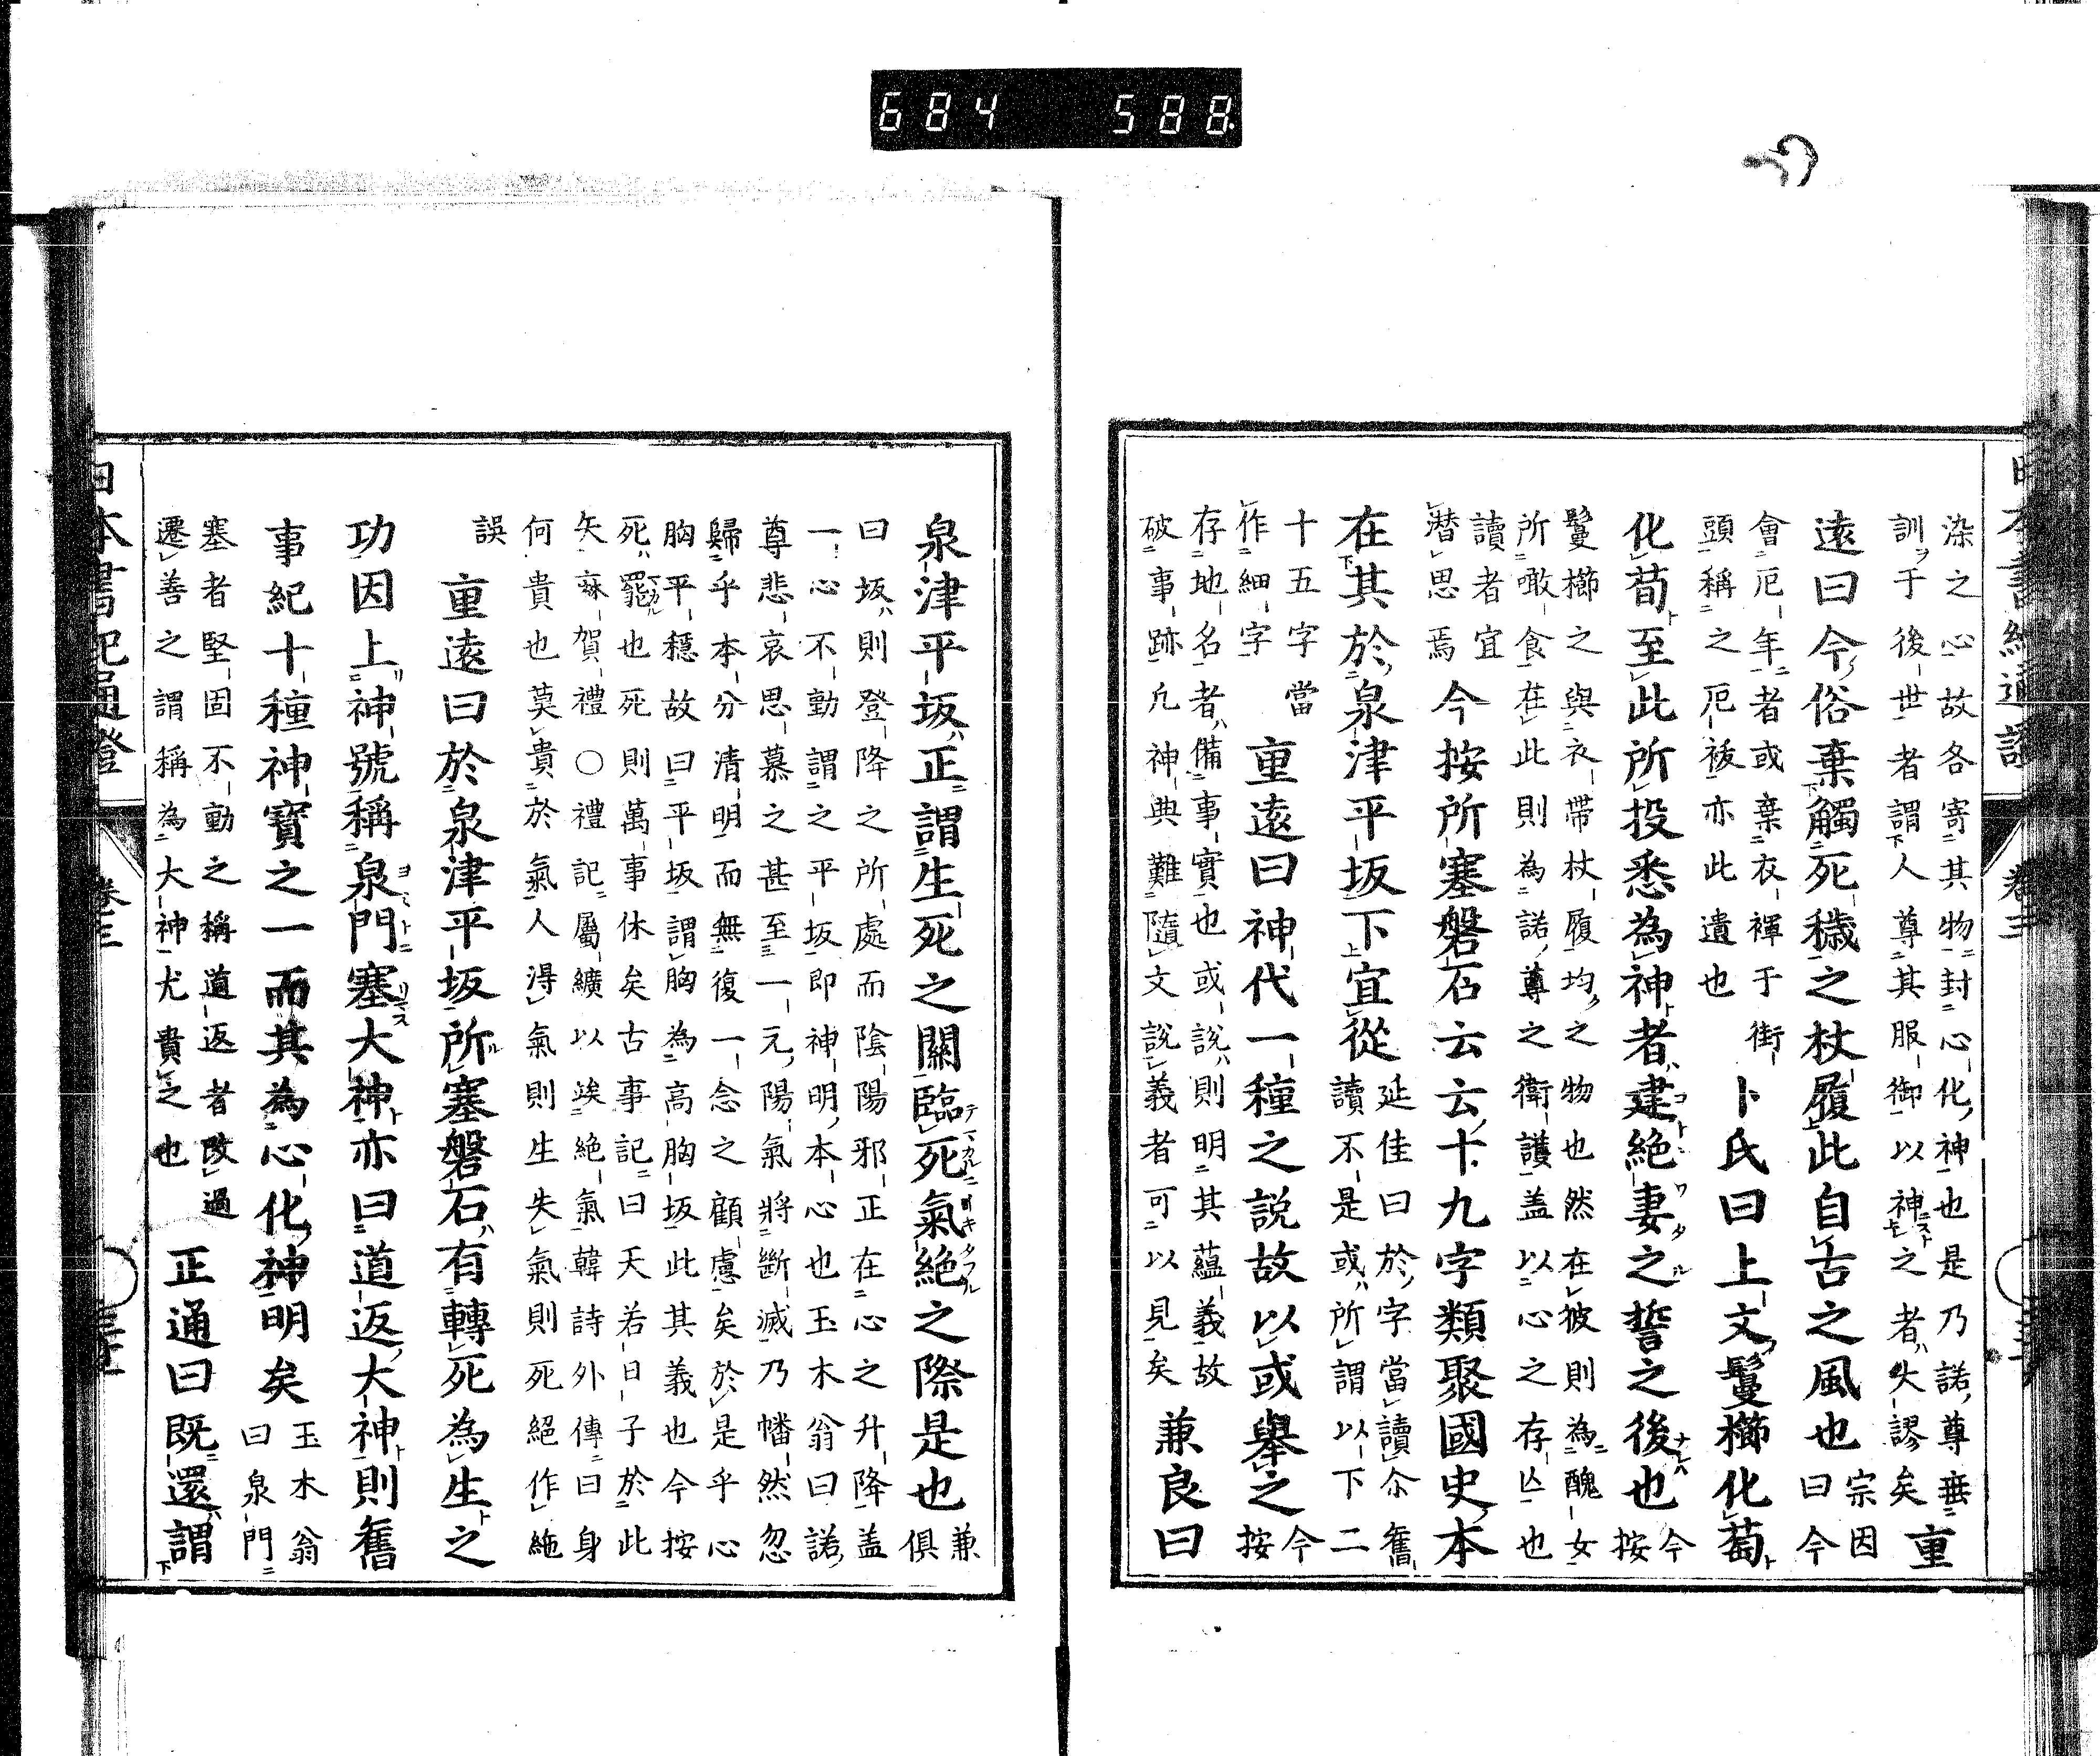 684 588
染之心故各寄其物封心化神也是乃諾尊垂
訓于後世者謂人尊其服御以神之者失謬矣
重
遠曰今俗棄觸死穢之杖履此自古之風也
宗因
曰今
會厄年者或棄衣襌于街
頭稱之厄祓亦此遺也
卜氏曰上文鬘櫛化萄
化萄至此所投悉為神者建絕妻之誓之後也
今
按
鬘櫛之與衣帶杖履均之物也然在彼則為醜女
所噉食在此則為諾尊之衛護盖以心之存亾也
讀者宜
潜思焉
今按所塞磐石云云十九字類聚國史本
在其於泉津平坂下宜從
延佳曰於字當讀尒舊
讀不是或所謂以下二
十五字當
作細字
重遠曰神代一種之説故以或舉之
今
按
存地名者備事實也或説則明其蘊義故
破事跡凢神典難隨文説義者可以見矣
兼良曰
泉津平坂正謂生死之關臨死氣絕之際是也
兼
俱
曰坂則登降之所處而陰陽邪正在心之升降盖
一心不動謂之平坂即神明本心也玉木翁曰諾
尊悲哀思慕之甚至一元陽氣將斷滅乃幡然忽
歸乎本分清明而無復一念之顧慮矣於是乎心
胸平穩故曰平坂謂胸為高胸坂此其義也今按
死罷也死則萬事休矣古事記曰天若日子於此
矢麻賀禮○禮記屬纊以竢絕氣韓詩外傳曰身
何貴也莫貴於氣人得氣則生失氣則死絕作絁
誤
重遠曰於泉津平坂所塞磐石有轉死為生之
功因上神號稱泉門塞大神亦曰道返大神則舊
事紀十種神寶之一而其為心化神明矣
玉木翁
曰泉門
塞者堅固不動之稱道返者改過
遷善之謂稱為大神尤貴之也
正通曰既還謂
日本書紀通證
卷三